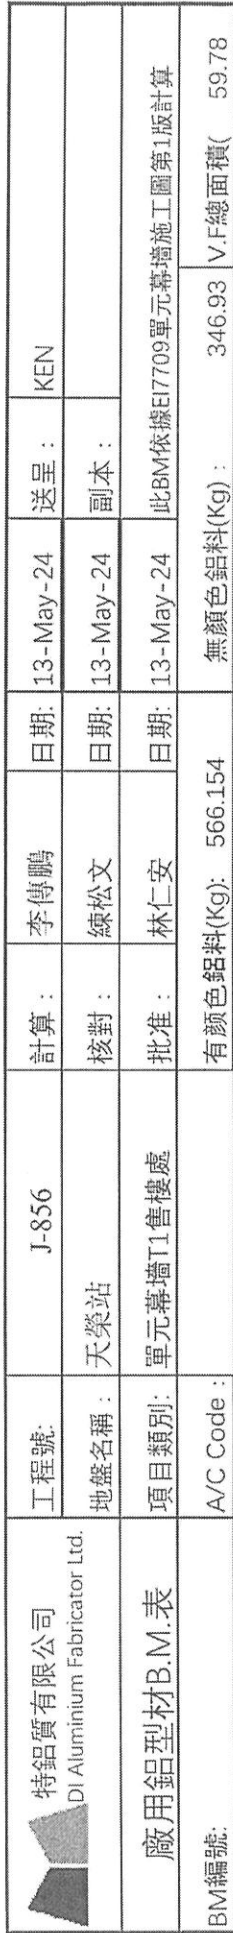 特鋁質有限公司
DI Aluminium Fabricator Ltd.
工程號: J-856 計算： 李傳鵬 日期: 13-May-24 送呈： KEN
地盤名稱： 天榮站 核對： 練松文 日期: 13-May-24 副本：
廠用鋁型材B.M.表 項目類別: 單元幕墻T1售樓處 批准： 林仁安 日期: 13-May-24 此BM依據EI7709單元幕墻施工圖第1版計算
BM編號: A/C Code： 有颜色鋁料(Kg): 566.154 無顏色鋁料(Kg)： 346.93 V.F總面積( 59.78